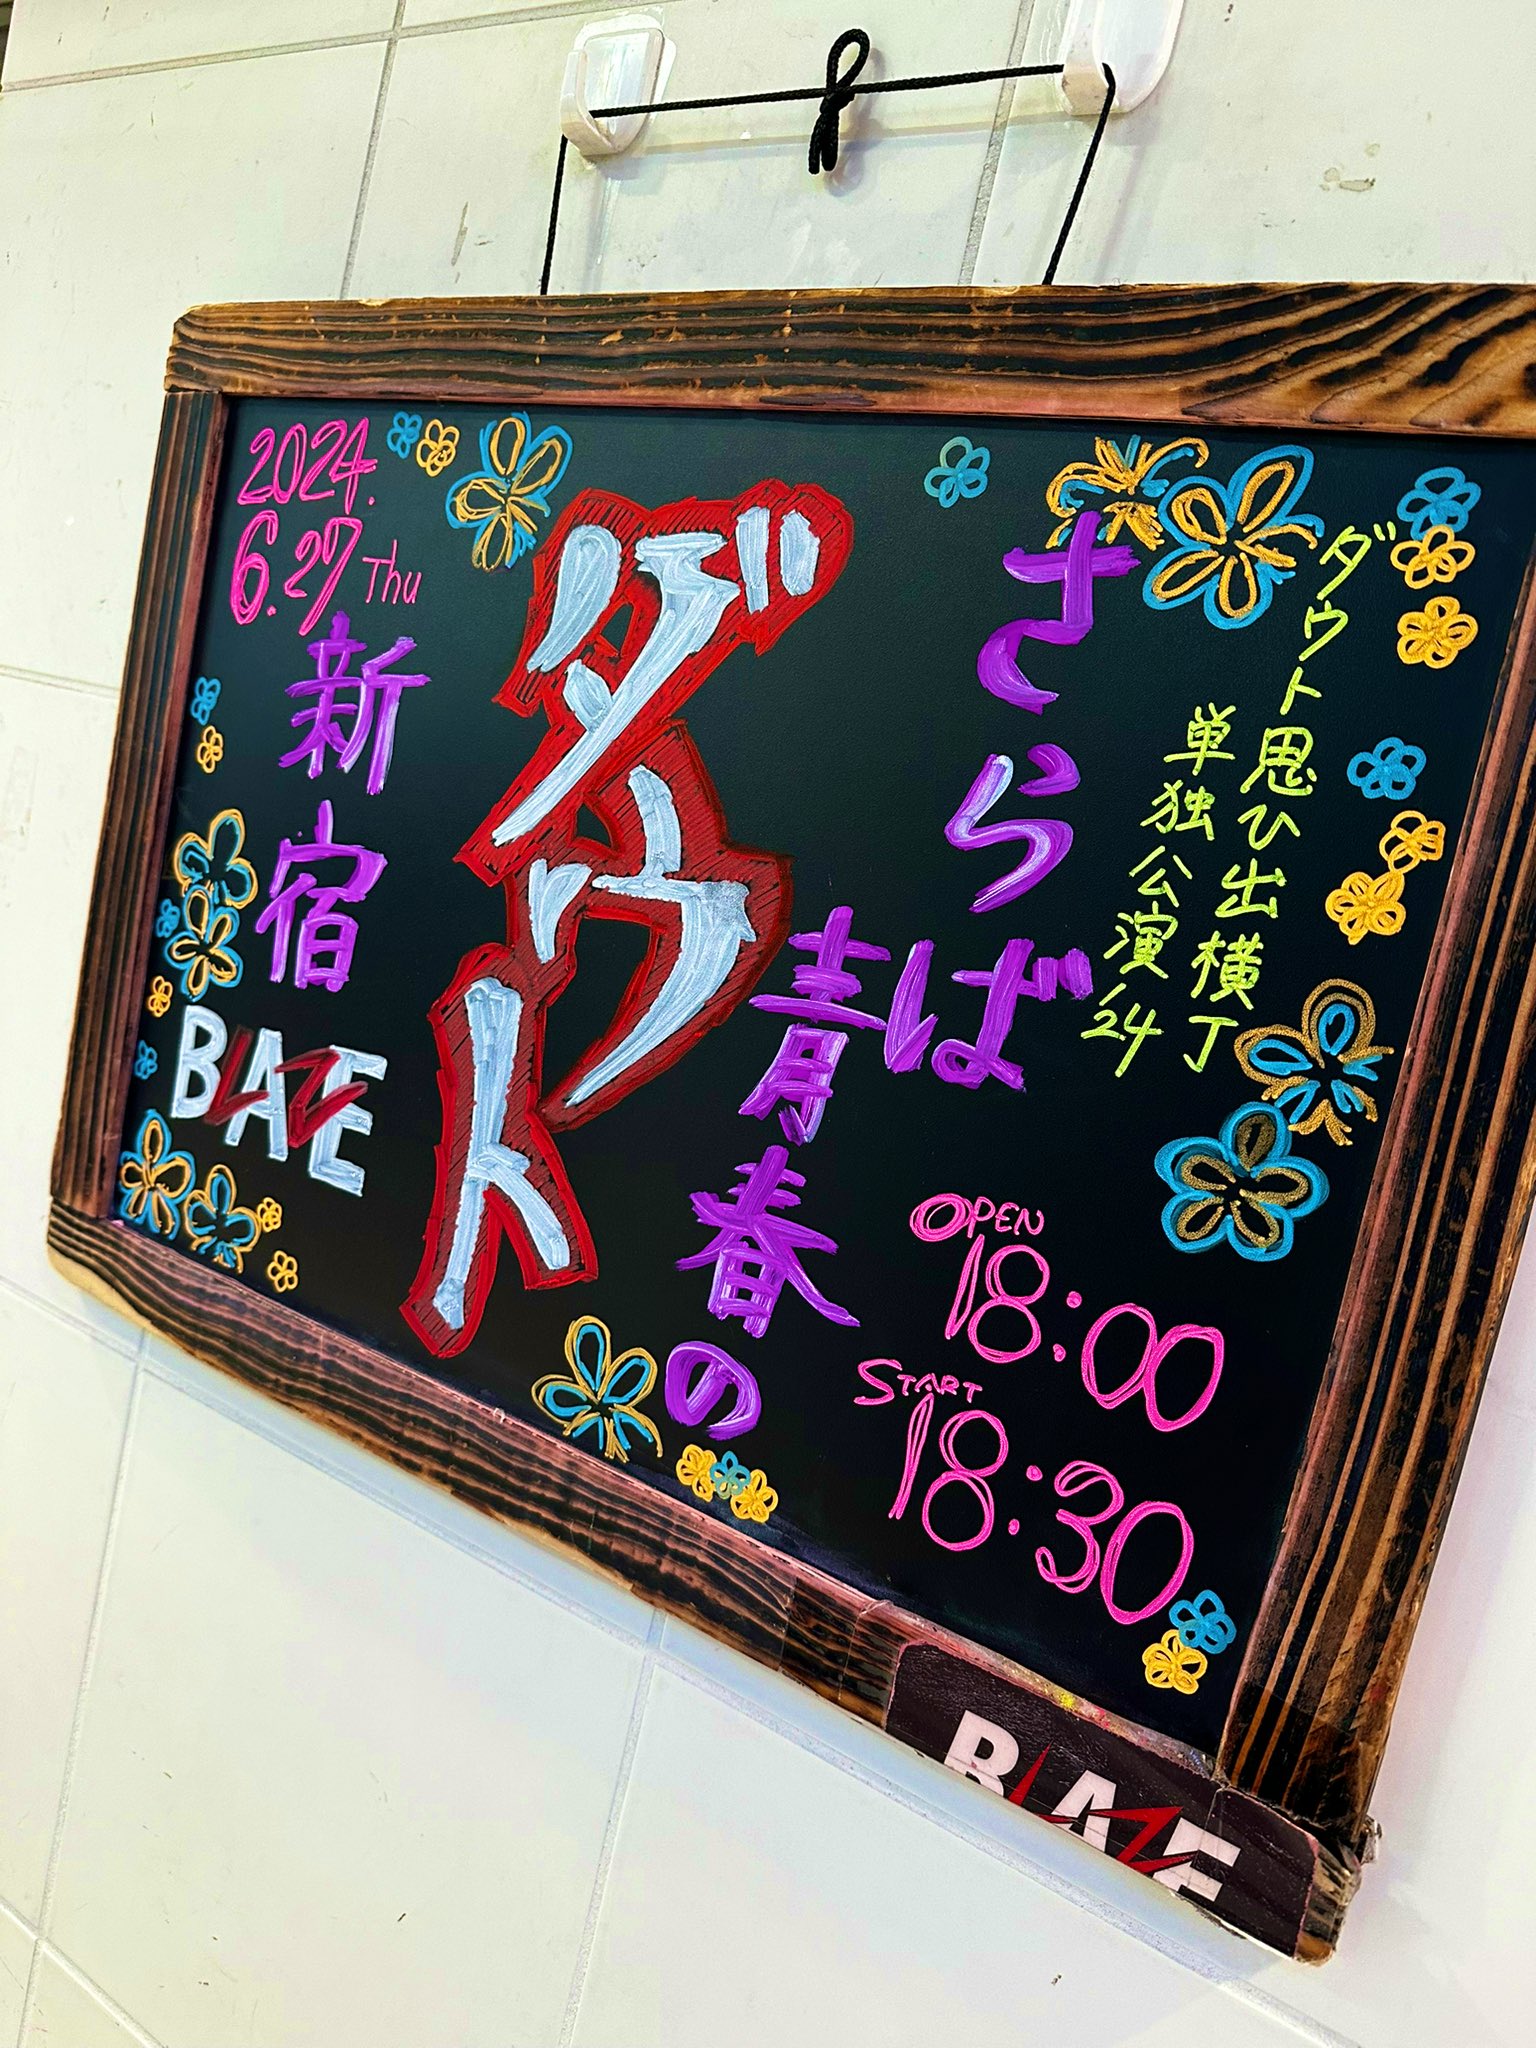 ダウト思ひ出横丁
単独公演'24
さらば
青春の
ダウト
2024.
6.27 Thu
新宿
BLAZE
OPEN
18:00
START
18:30
BLAZE